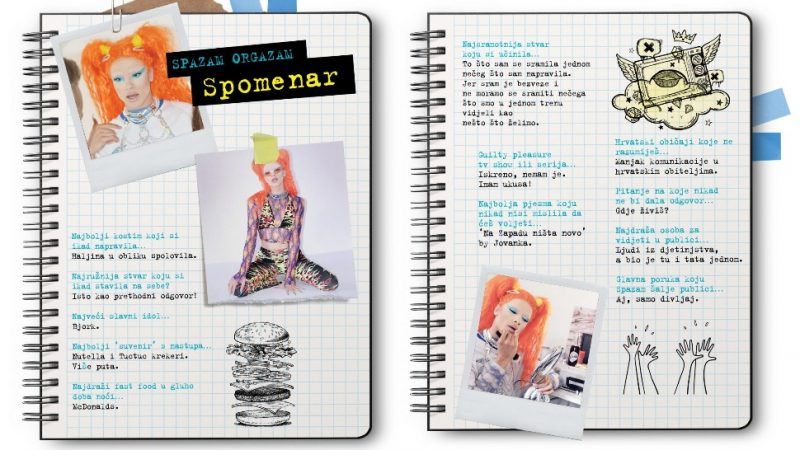 SPAZAM ORGAZAM
Spomenar
Najbolji kostim koji si
ikad napravila...
Haljina u obliku spolovila.
Najružnija stvar koju si
ikad stavila na sebe?
Isto kao prethodni odgovor!
Najveći slavni idol...
Bjork.
Najbolji 'suvenir' s nastupa...
Nutella i Tuctuc krekeri.
Više puta.
Najdraži fast food u gluho
doba noći...
McDonalds.
Najsramotnija stvar
koju si učinila...
To što sam se sramila jednom
nečeg što sam napravila.
Jer sram je bezveze i
ne moramo se sramiti nečega
što smo u jednom trenu
vidjeli kao
nešto što želimo.
Guilty pleasure
tv show ili serija...
Iskreno, nemam je.
Imam ukusa!
Najbolja pjesma koju
nikad nisi mislila da
ćeš voljeti...
'Na Zapadu ništa novo'
by Jovanka.
Hrvatski običaji koje ne
razumiješ...
Manjak komunikacije u
hrvatskim obiteljima.
Pitanje na koje nikad
ne bi dala odgovor...
Gdje živiš?
Najdraža osoba za
vidjeti u publici...
Ljudi iz djetinjstva,
a bio je tu i tata jednom.
Glavna poruka koju
Spazam šalje publici...
Aj, samo divljaj.